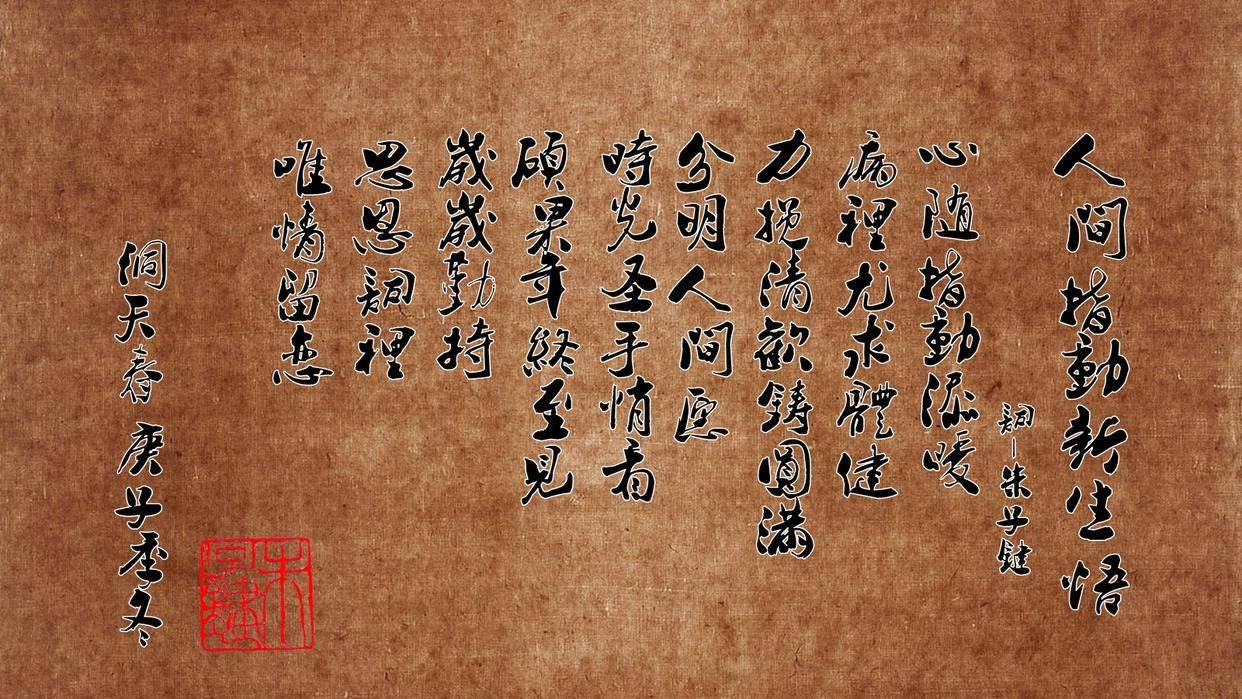 人間指動新生悟
詞—朱子鍵
心随指動添暖
病裡尤求體健
力挽清歡鑄圓滿
分明人間愿
時光圣手悄看
碩果年終至見
歲歲勤持
思恩詞裡
唯情留恋
侗天春 庚子季冬
朱子鍵